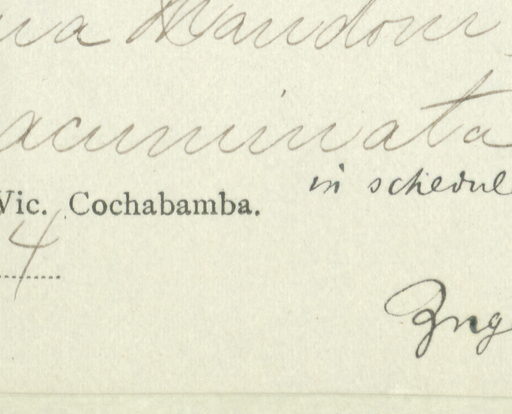 na Mandoni
acuminata
in schedul
Vic. Cochabamba.
4
Zng